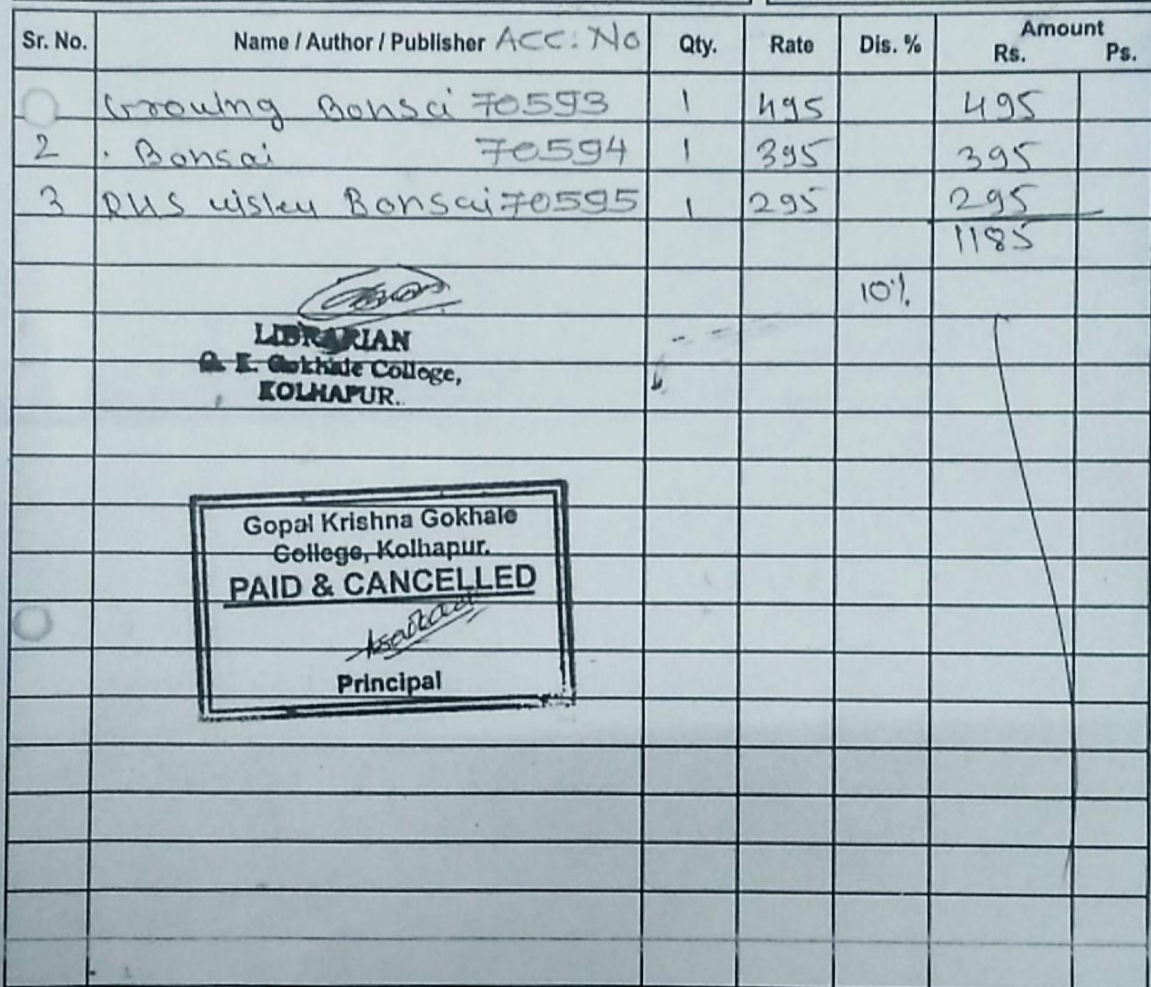 Sr. No. Name / Author / Publisher Acc. No Qty. Rate Dis. % Amount Rs. Ps.
Growing Bonsai 70593 1 495 495
2 . Bonsai 70594 1 395 395
3 RHS wisley Bonsai 70595 1 295 295
1185
10%
LIBRARIAN
G. K. Gokhale College,
KOLHAPUR.
Gopal Krishna Gokhale
College, Kolhapur.
PAID & CANCELLED
Principal